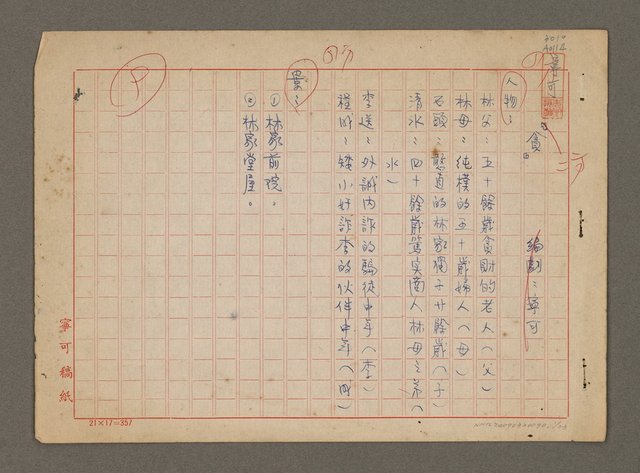 貪。
編劇：寧可
人物：
林父：五十餘歲貪財的老人（父）
林母：純樸的五十歲婦人（母）
石頭：憨直的林家獨子廿餘歲（子）
清水：四十餘歲篤實商人林母之弟（
水）
李送：外誠內詐的騙徒中年（李）
矮小奸詐李的伙伴中年（
景：
①林家前院。
②林家堂屋。
寧可稿紙
21×17=357